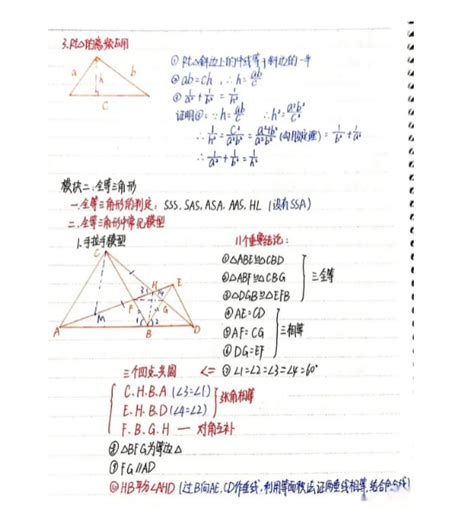 3. Rt△的高频应用
a h b
c
① Rt△斜边上的中线等于斜边的一半
② ab=ch, ∴h=ab/c
③ 1/a²+1/b²=1/h²
证明③: ∵h=ab/c ∴h²=a²b²/c²
∴1/h²=c²/a²b²=a²+b²/a²b² (勾股定理)=1/b²+1/a²
∴1/a²+1/b²=1/h²
模块二、全等三角形
一、全等三角形的判定: SSS, SAS, ASA, AAS, HL (没有SSA)
二、全等三角形中常见模型
1. 手拉手模型
11个重要结论:
C H E
3 4
F G
M
1 2
A B D
①△ABE≌△CBD
②△ABF≌△CBG
③△DGB≌△EFB
三全等
④AE=CD
⑤AF=CG
⑥DG=EF
三相等
三个四点共圆 <= ⑦∠1=∠2=∠3=∠4=60°
C.H.B.A (∠3=∠1)
E.H.B.D (∠4=∠2)
张角相等
F.B.G.H — 对角互补
⑧△BFG为等边△
⑨FG∥AD
⑩HB平分∠AHD (过B向AE,CD作垂线,利用等面积法,证两垂线相等,